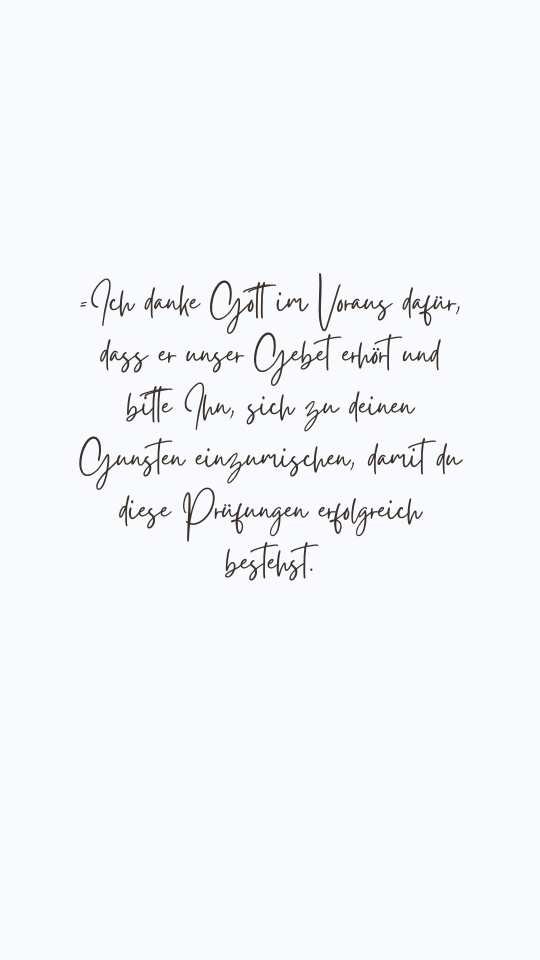 =Ich danke Gott im Voraus dafür,
dass er unser Gebet erhört und
bitte Ihn, sich zu deinen
Gunsten einzumischen, damit du
diese Prüfungen erfolgreich
bestehst.